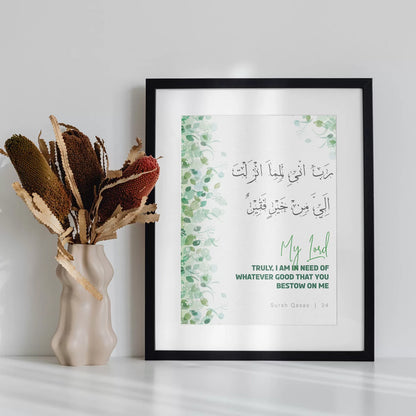 رَبِّ اِنِّیْ لِمَاۤ اَنْزَلْتَ
اِلَیَّ مِنْ خَیْرٍ فَقِیْرٌ
My Lord
TRULY, I AM IN NEED OF
WHATEVER GOOD THAT YOU
BESTOW ON ME
Surah Qasas | 24